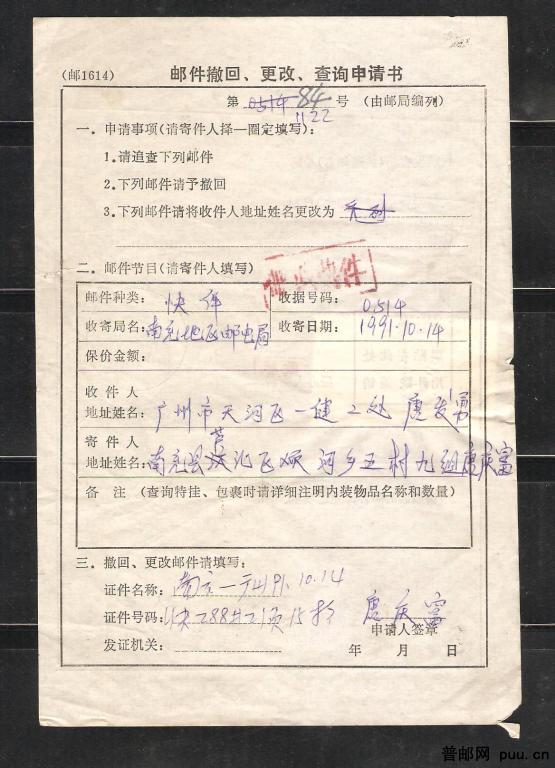 (邮1614)
邮件撤回、更改、查询申请书
第 0514 84 号 (由邮局编列)
1122
一．申请事项(请寄件人择一圈定填写)：
1．请追查下列邮件
2．下列邮件请予撤回
3．下列邮件请将收件人地址姓名更改为
二．邮件节目(请寄件人填写)
邮件种类： 快件 收据号码： 0514
收寄局名： 南充地区邮电局 收寄日期： 1991.10.14
保价金额：
收件人
地址姓名： 广州市天河区一建2处 唐发勇
寄件人 芦
地址姓名： 南充县溪区河乡五村九组唐庆富
备注 (查询特挂、包裹时请详细注明内装物品名称和数量)
三．撤回、更改邮件请填写：
证件名称： 南充一 91.10.14
证件号码： 快288 21页15 唐庆富
申请人签章
发证机关： 年 月 日
普邮网 puu.cn